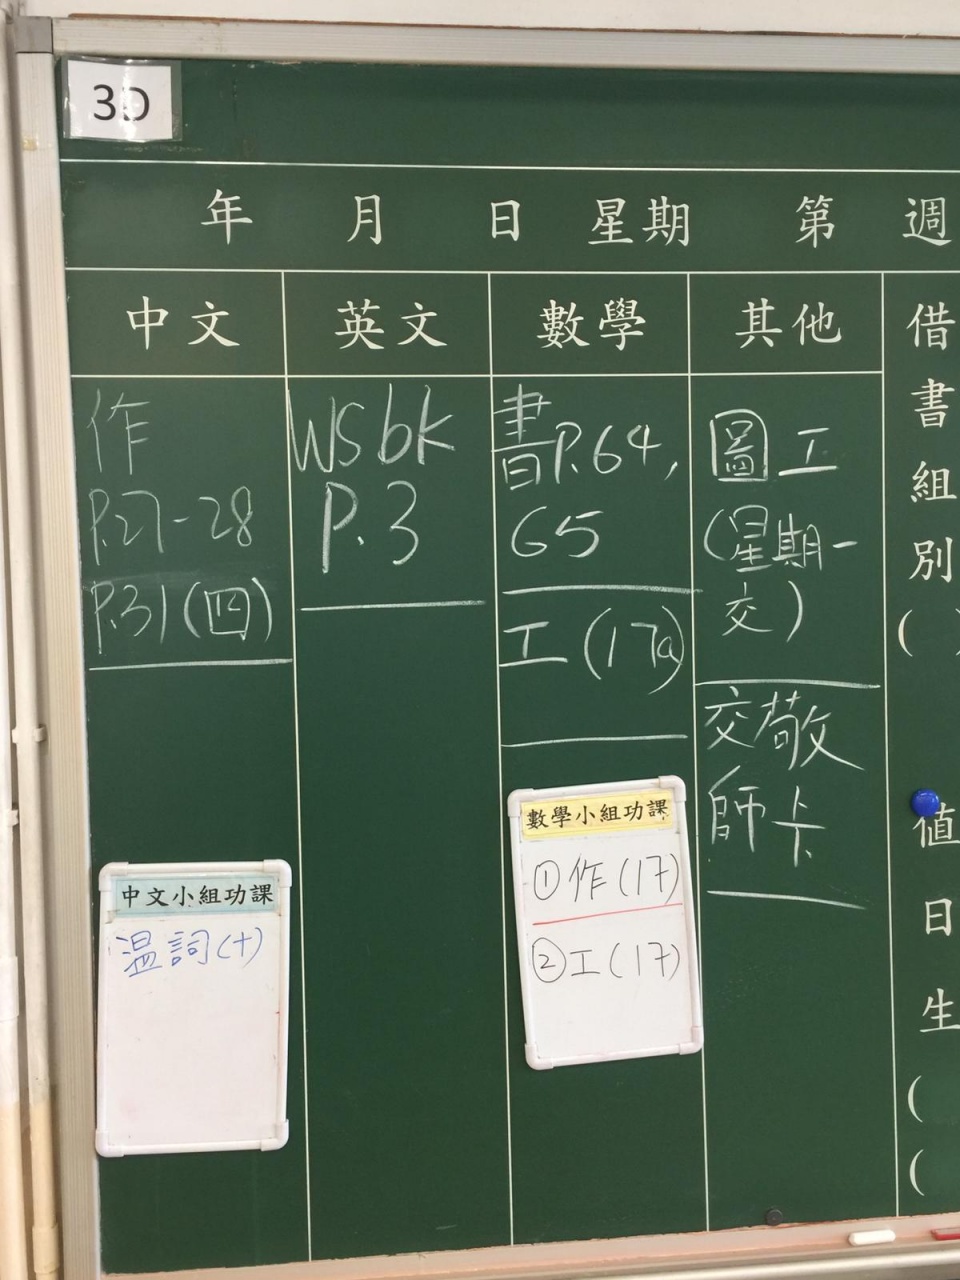 3D
年 月 日 星期 第 週
中文 英文 數學 其他
作
P.27-28
P.31(四)
WS bk
P.3
書P.64,
65
工(17a)
圖工
(星期一
交)
交敬
師卡
借書組別
( )
值日生
(
(
中文小組功課
溫詞(十)
數學小組功課
①作(17)
②工(17)